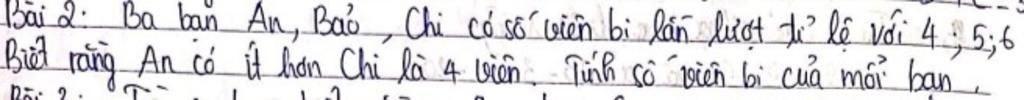 Bài 2: Ba bạn An, Bảo, Chi có số viên bi lần lượt tỉ lệ với 4; 5; 6
Biết rằng An có ít hơn Chi là 4 viên. Tính số viên bi của mỗi bạn.